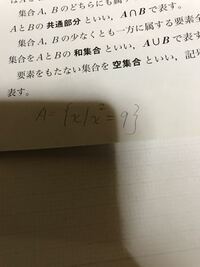 集合 A, B のどちらにも属す
AとBの 共通部分 といい, A∩B で表す。
集合 A, B の少なくとも一方に属する要素全
集合をAとBの 和集合 といい, A∪B で表す
要素をもたない集合を 空集合 といい, 記
表す。
A={x|x²=9}